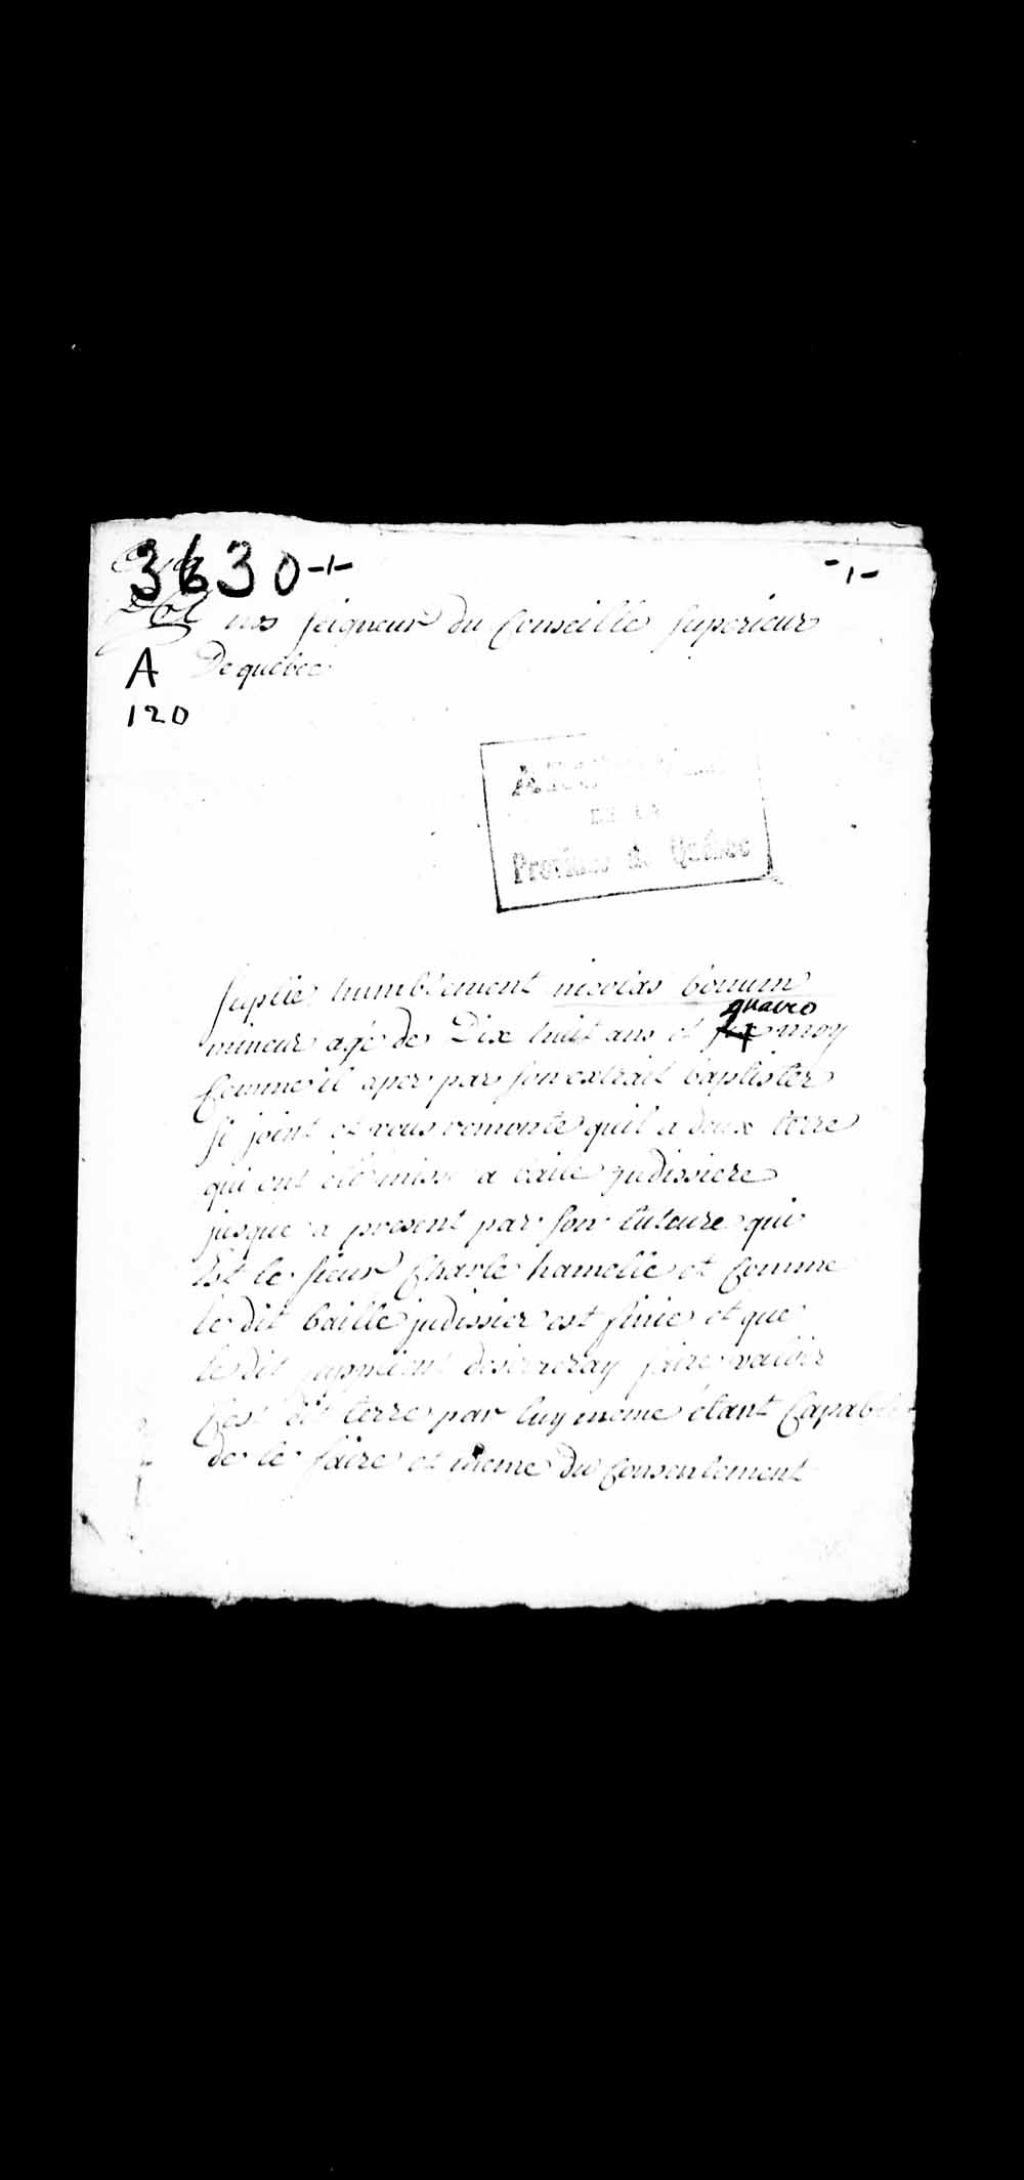 3630 -1-
-1-
nos seigneur du Conseille superieur
A De quebec
120
Province de Quebec
suplie humblement nicolas bonum
quatro
mineur agé de Dix huit ans et moy
Comme il aper par son extrait baptister
si joint et vous remonte quil a deux terre
qui ont eté miss a baille judissiere
jusque a present par son tuteure qui
Est le sieur Charle hamelie et Comme
le dit baille judissier est finie et que
le dit supliant desireray faire valoir
Ces dit terre par luy meme étant Capable
de le faire et meme du Consentement